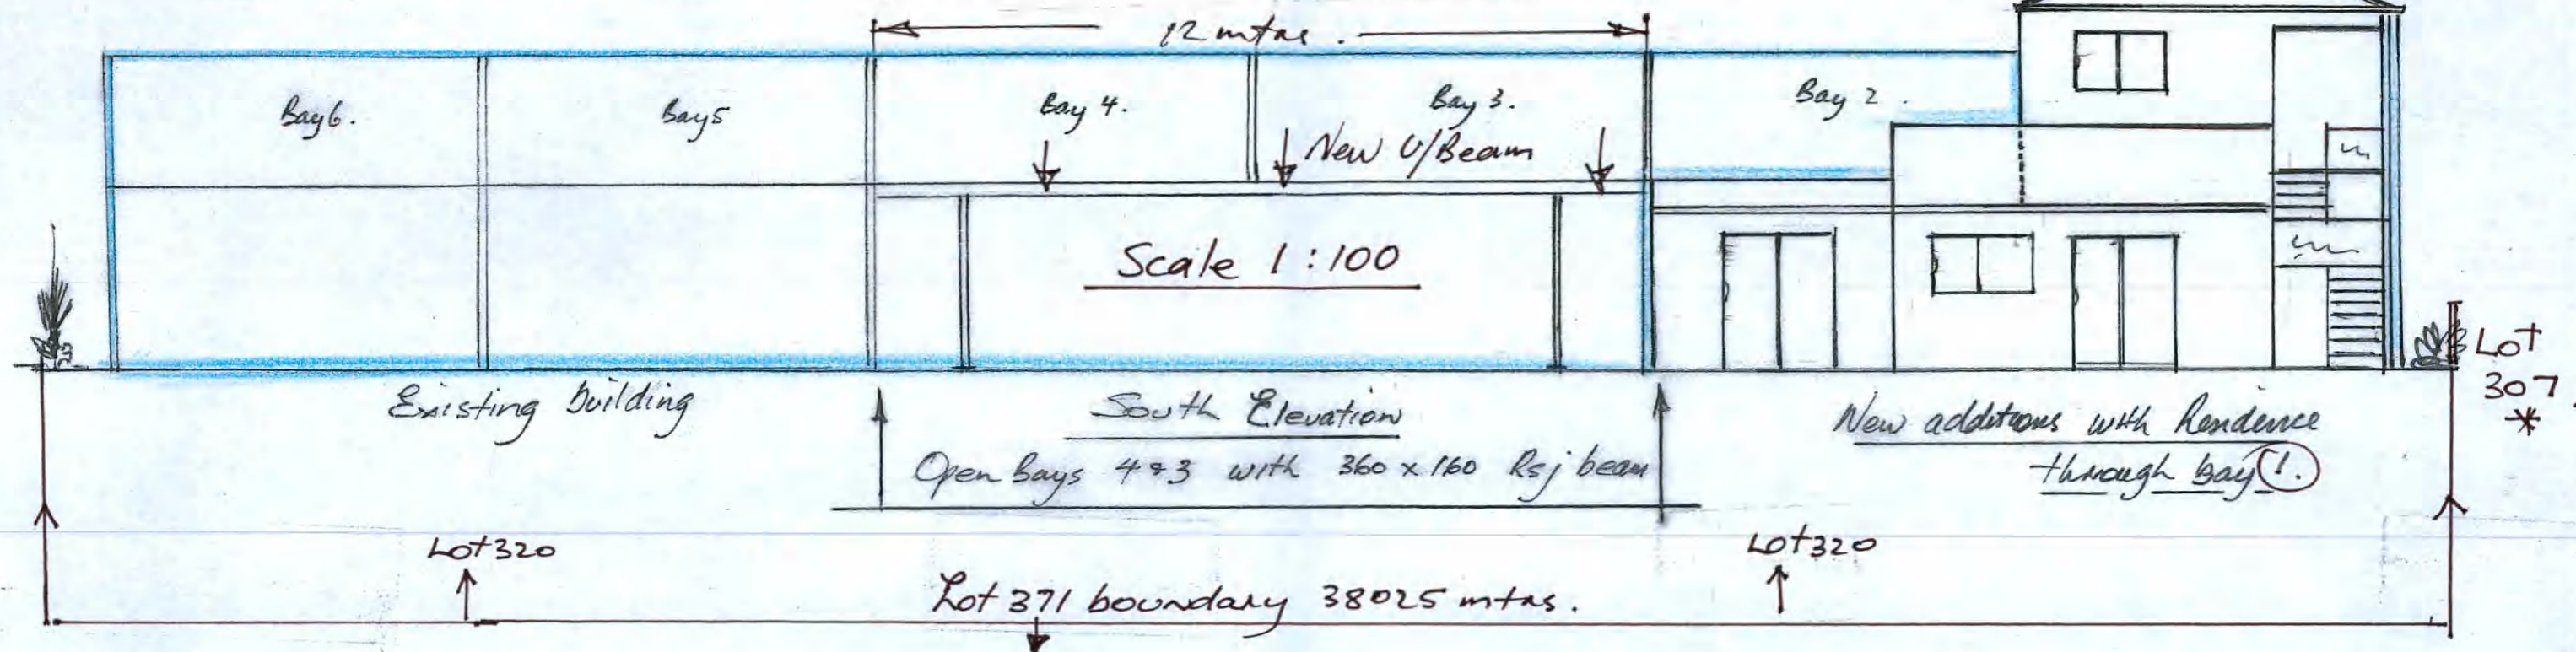 12 mtrs.
Bay 6.
Bay 5
Bay 4.
Bay 3.
Bay 2.
New U/Beam
Scale 1:100
Lot
307
*
Existing building
South Elevation
Open Bays 4 & 3 with 360 x 160 Rsj beam
New additions with Residence
through bay 1.
Lot 320
Lot 320
Lot 371 boundary 38025 mtrs.